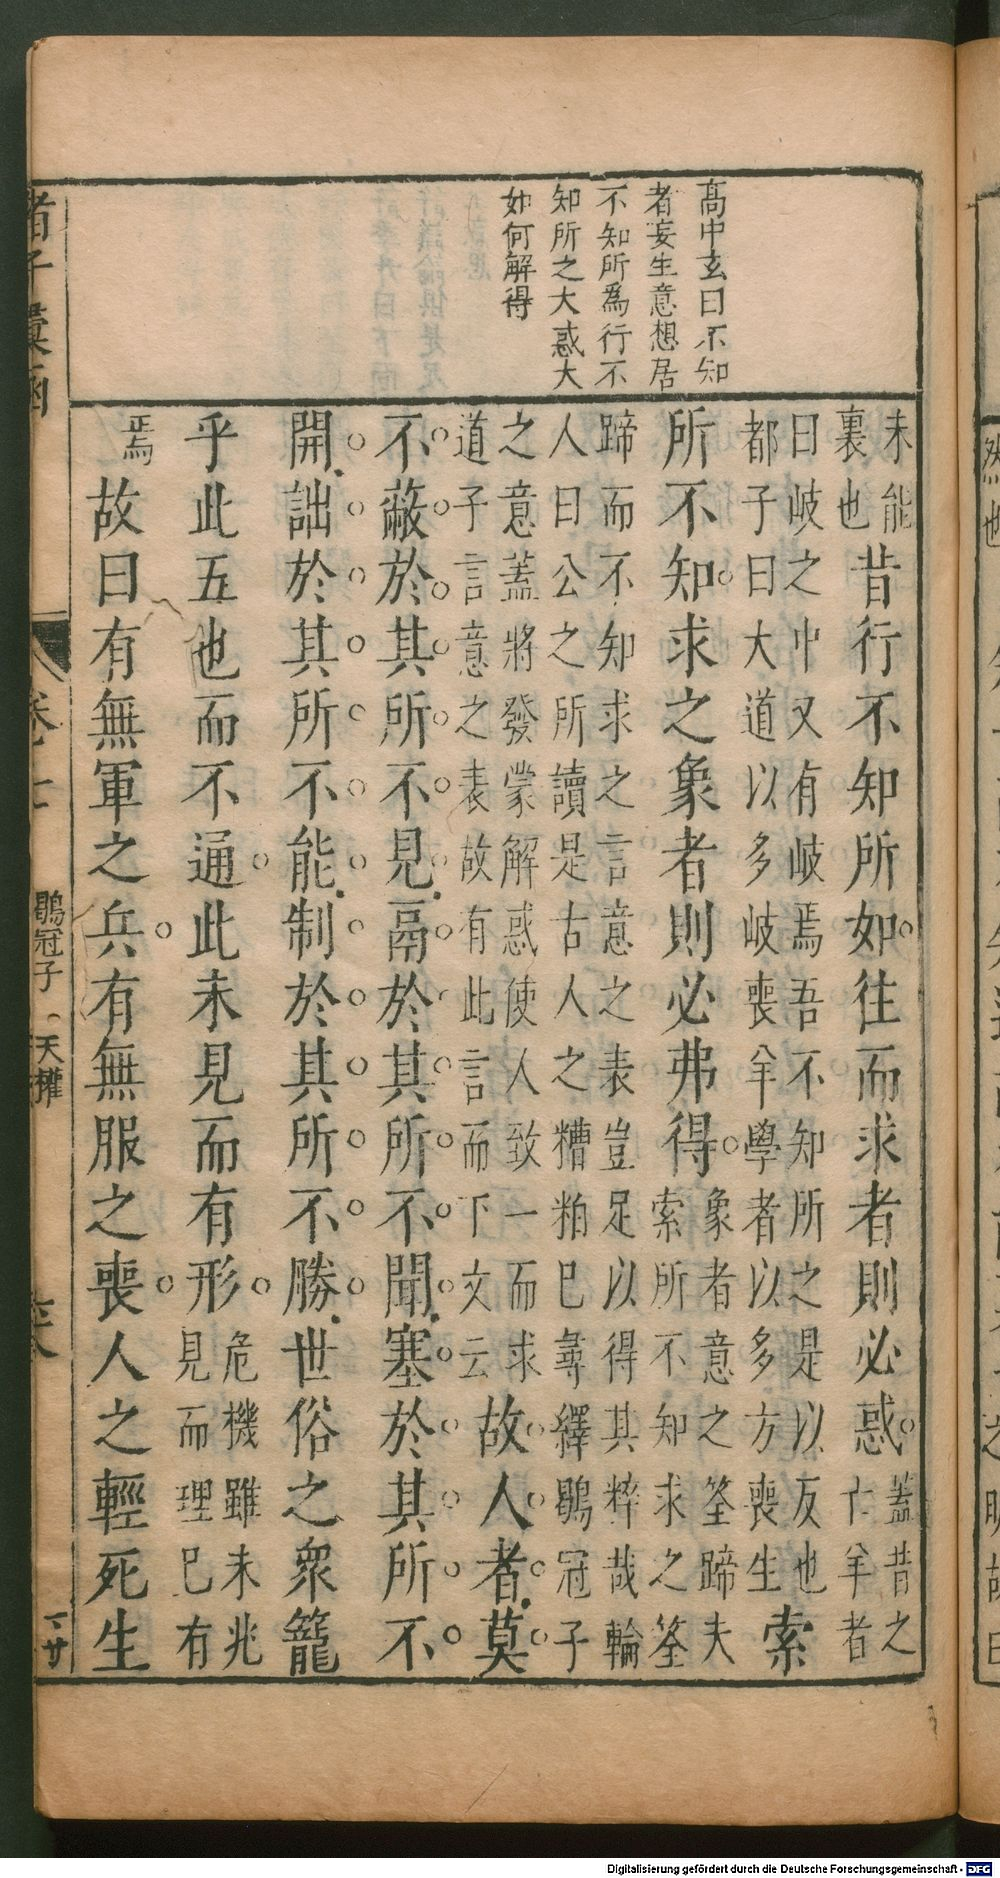 高中玄曰不知
者妄生意想居
不知所為行不
知所之大惑大
如何解得
未能
裏也
昔行不知所如往而求者則必惑
蓋昔之
亡羊者
曰岐之中又有岐焉吾不知所之是以反也
都子曰大道以多岐喪羊學者以多方喪生
索
所不知求之象者則必弗得
象者意之筌蹄夫
索所不知求之筌
蹄而不知求之言意之表豈足以得其粹哉輪
人曰公之所讀是古人之糟粕已尋繹鶡冠子
之意蓋將發蒙解惑使人致一而求
道子言意之表故有此言而下文云
故人者莫
不蔽於其所不見鬲於其所不聞塞於其所不
開詘於其所不能制於其所不勝世俗之衆籠
乎此五也而不通此未見而有形
危機雖未兆
見而理已有
焉
故曰有無軍之兵有無服之喪人之輕死生
子彙函
鶡冠子 天權
Digitalisierung gefördert durch die Deutsche Forschungsgemeinschaft - DFG